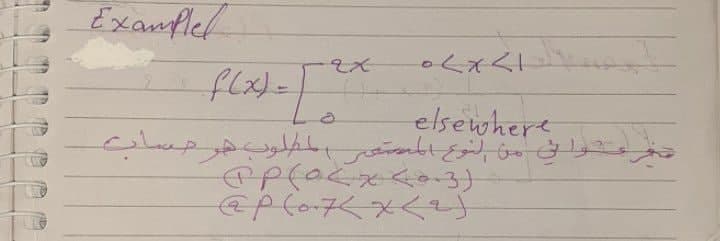 Example
f(x) = [ 2x 0<x<1
0 elsewhere
متغير عشوائي من النوع المستمر المطلوب هو حساب
① P(0<x<0.3)
② P(0.7<x<2)